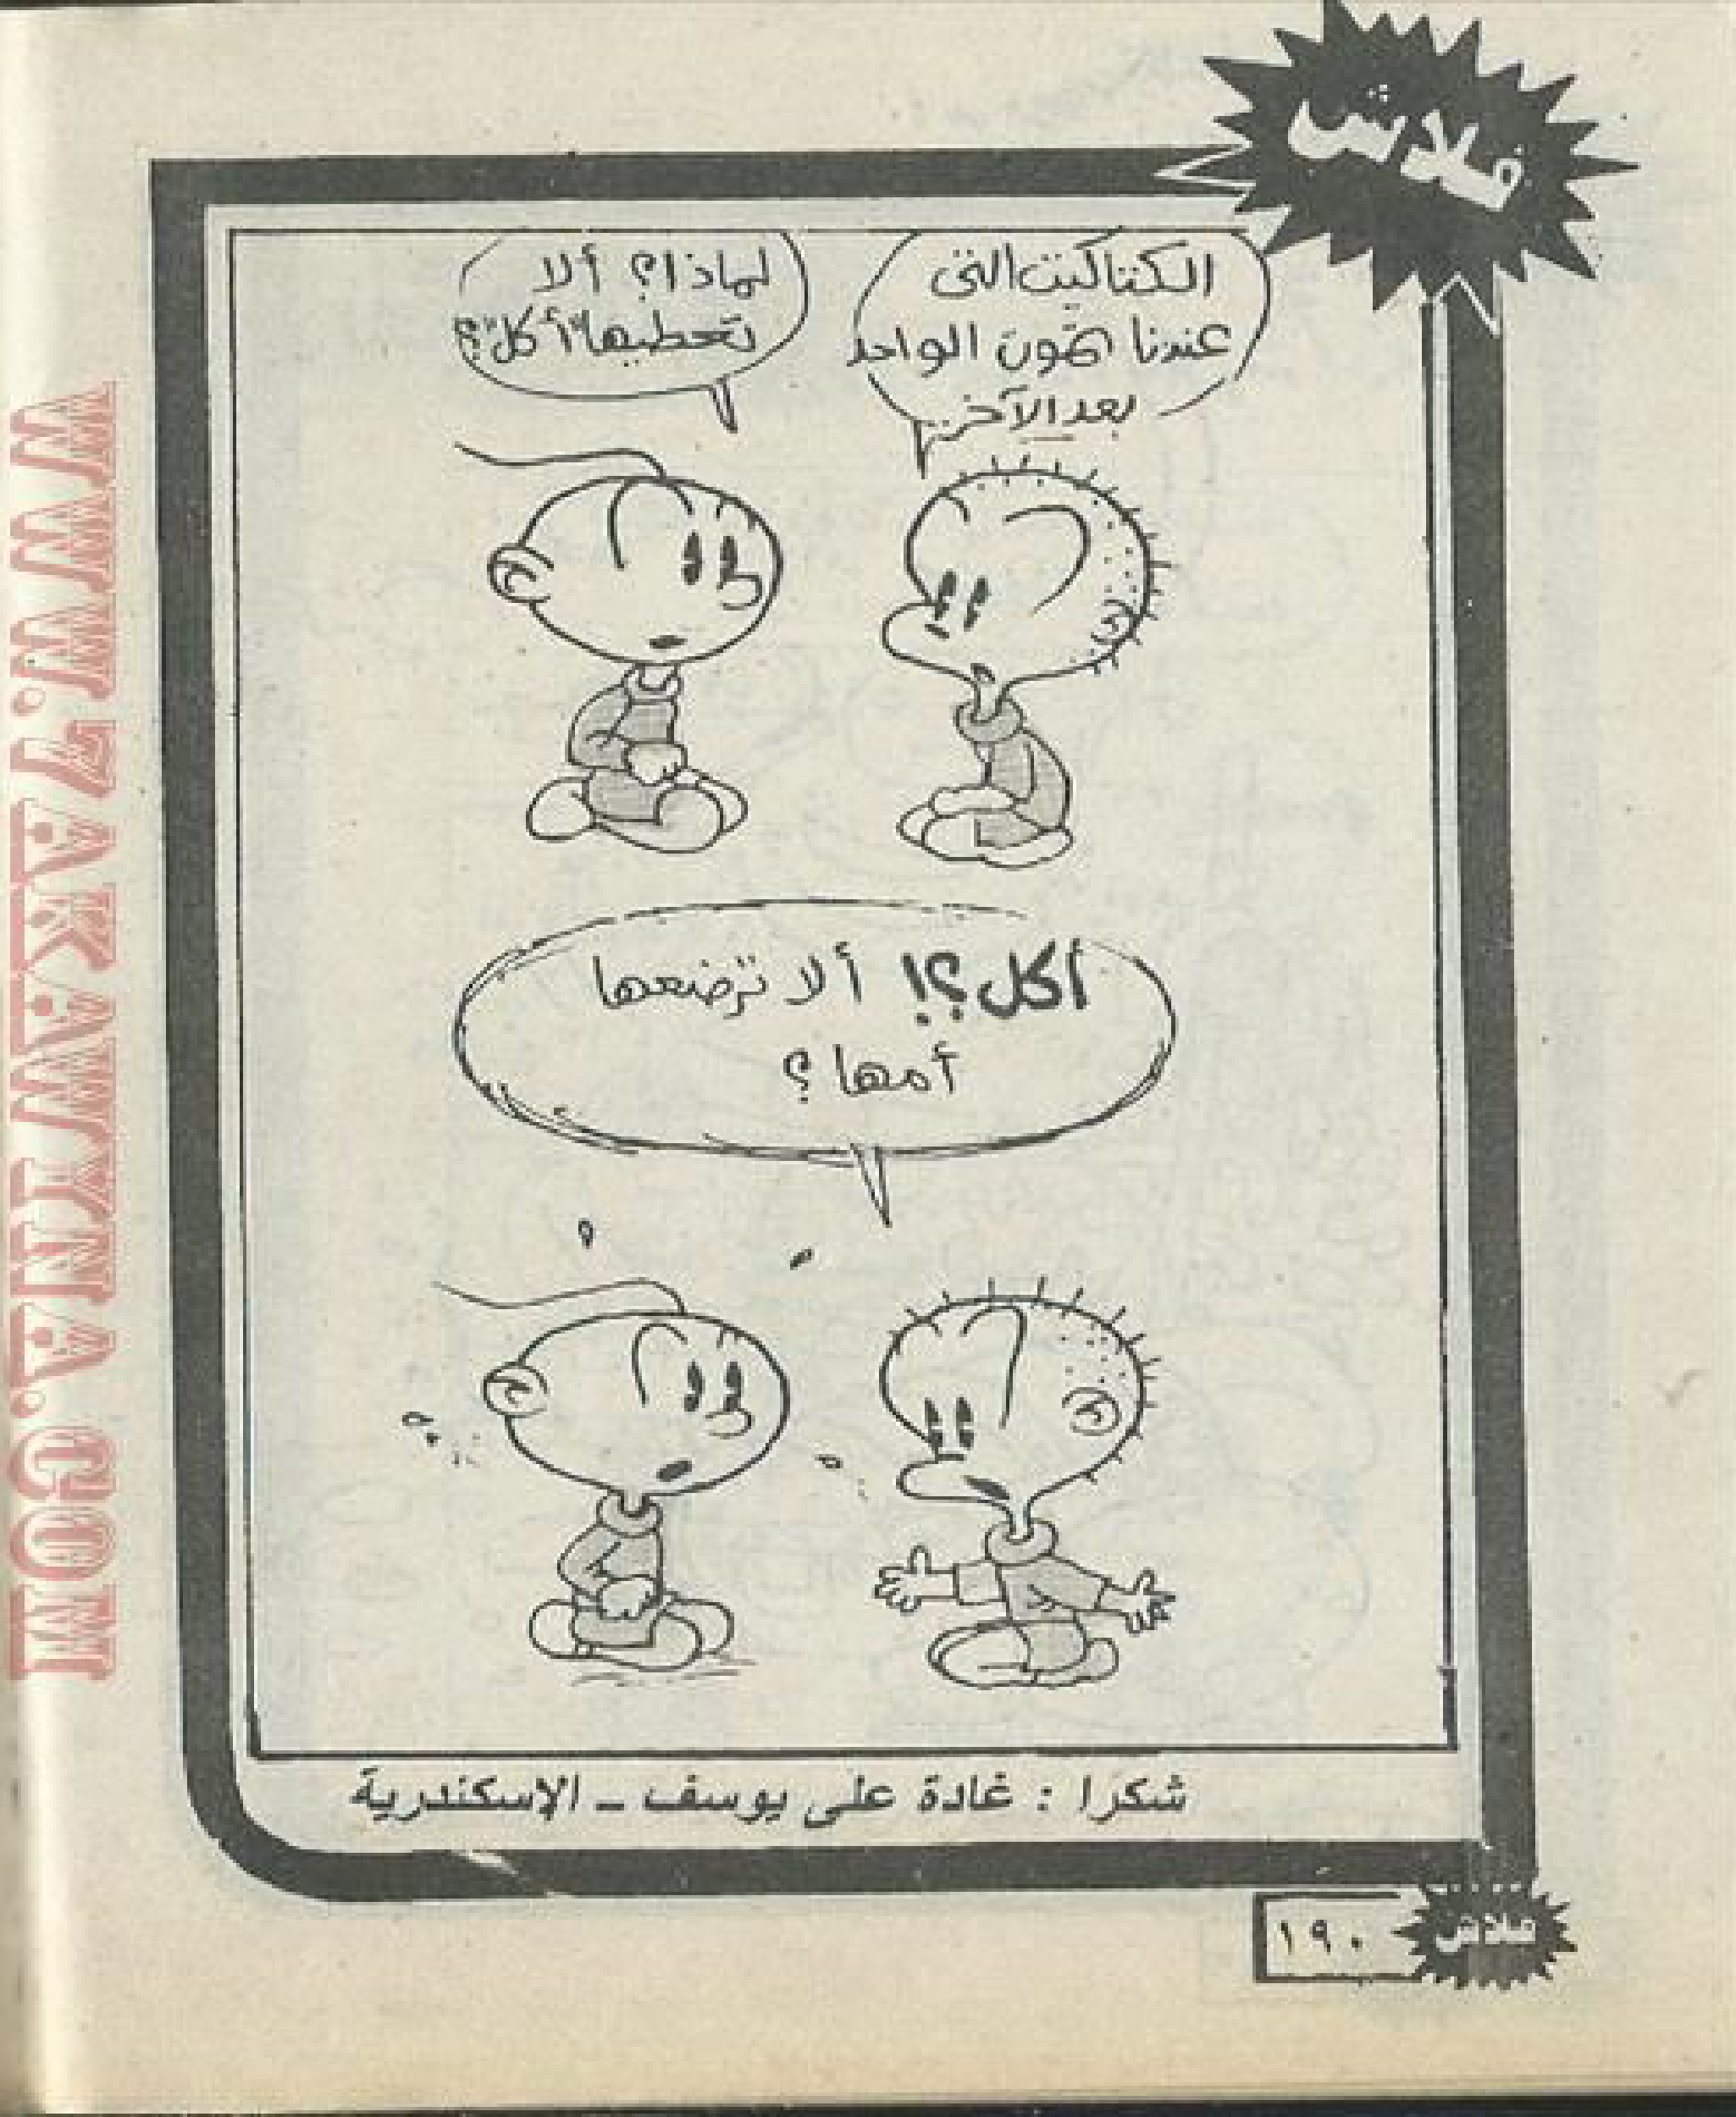 فلاش
الكتاكيت التى
عندنا تموت الواحد
بعد الآخر..
لماذا؟ ألا
تعطيها "أكل"؟
أكل؟! ألا ترضعها
أمها؟
شكرا : غادة على يوسف ـ الإسكندرية
١٩٠
فلاش